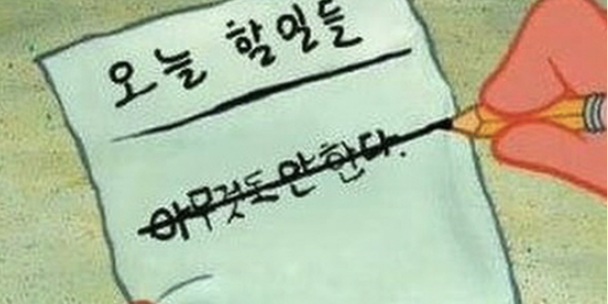 오늘 할일들
아무것도 안 한다.